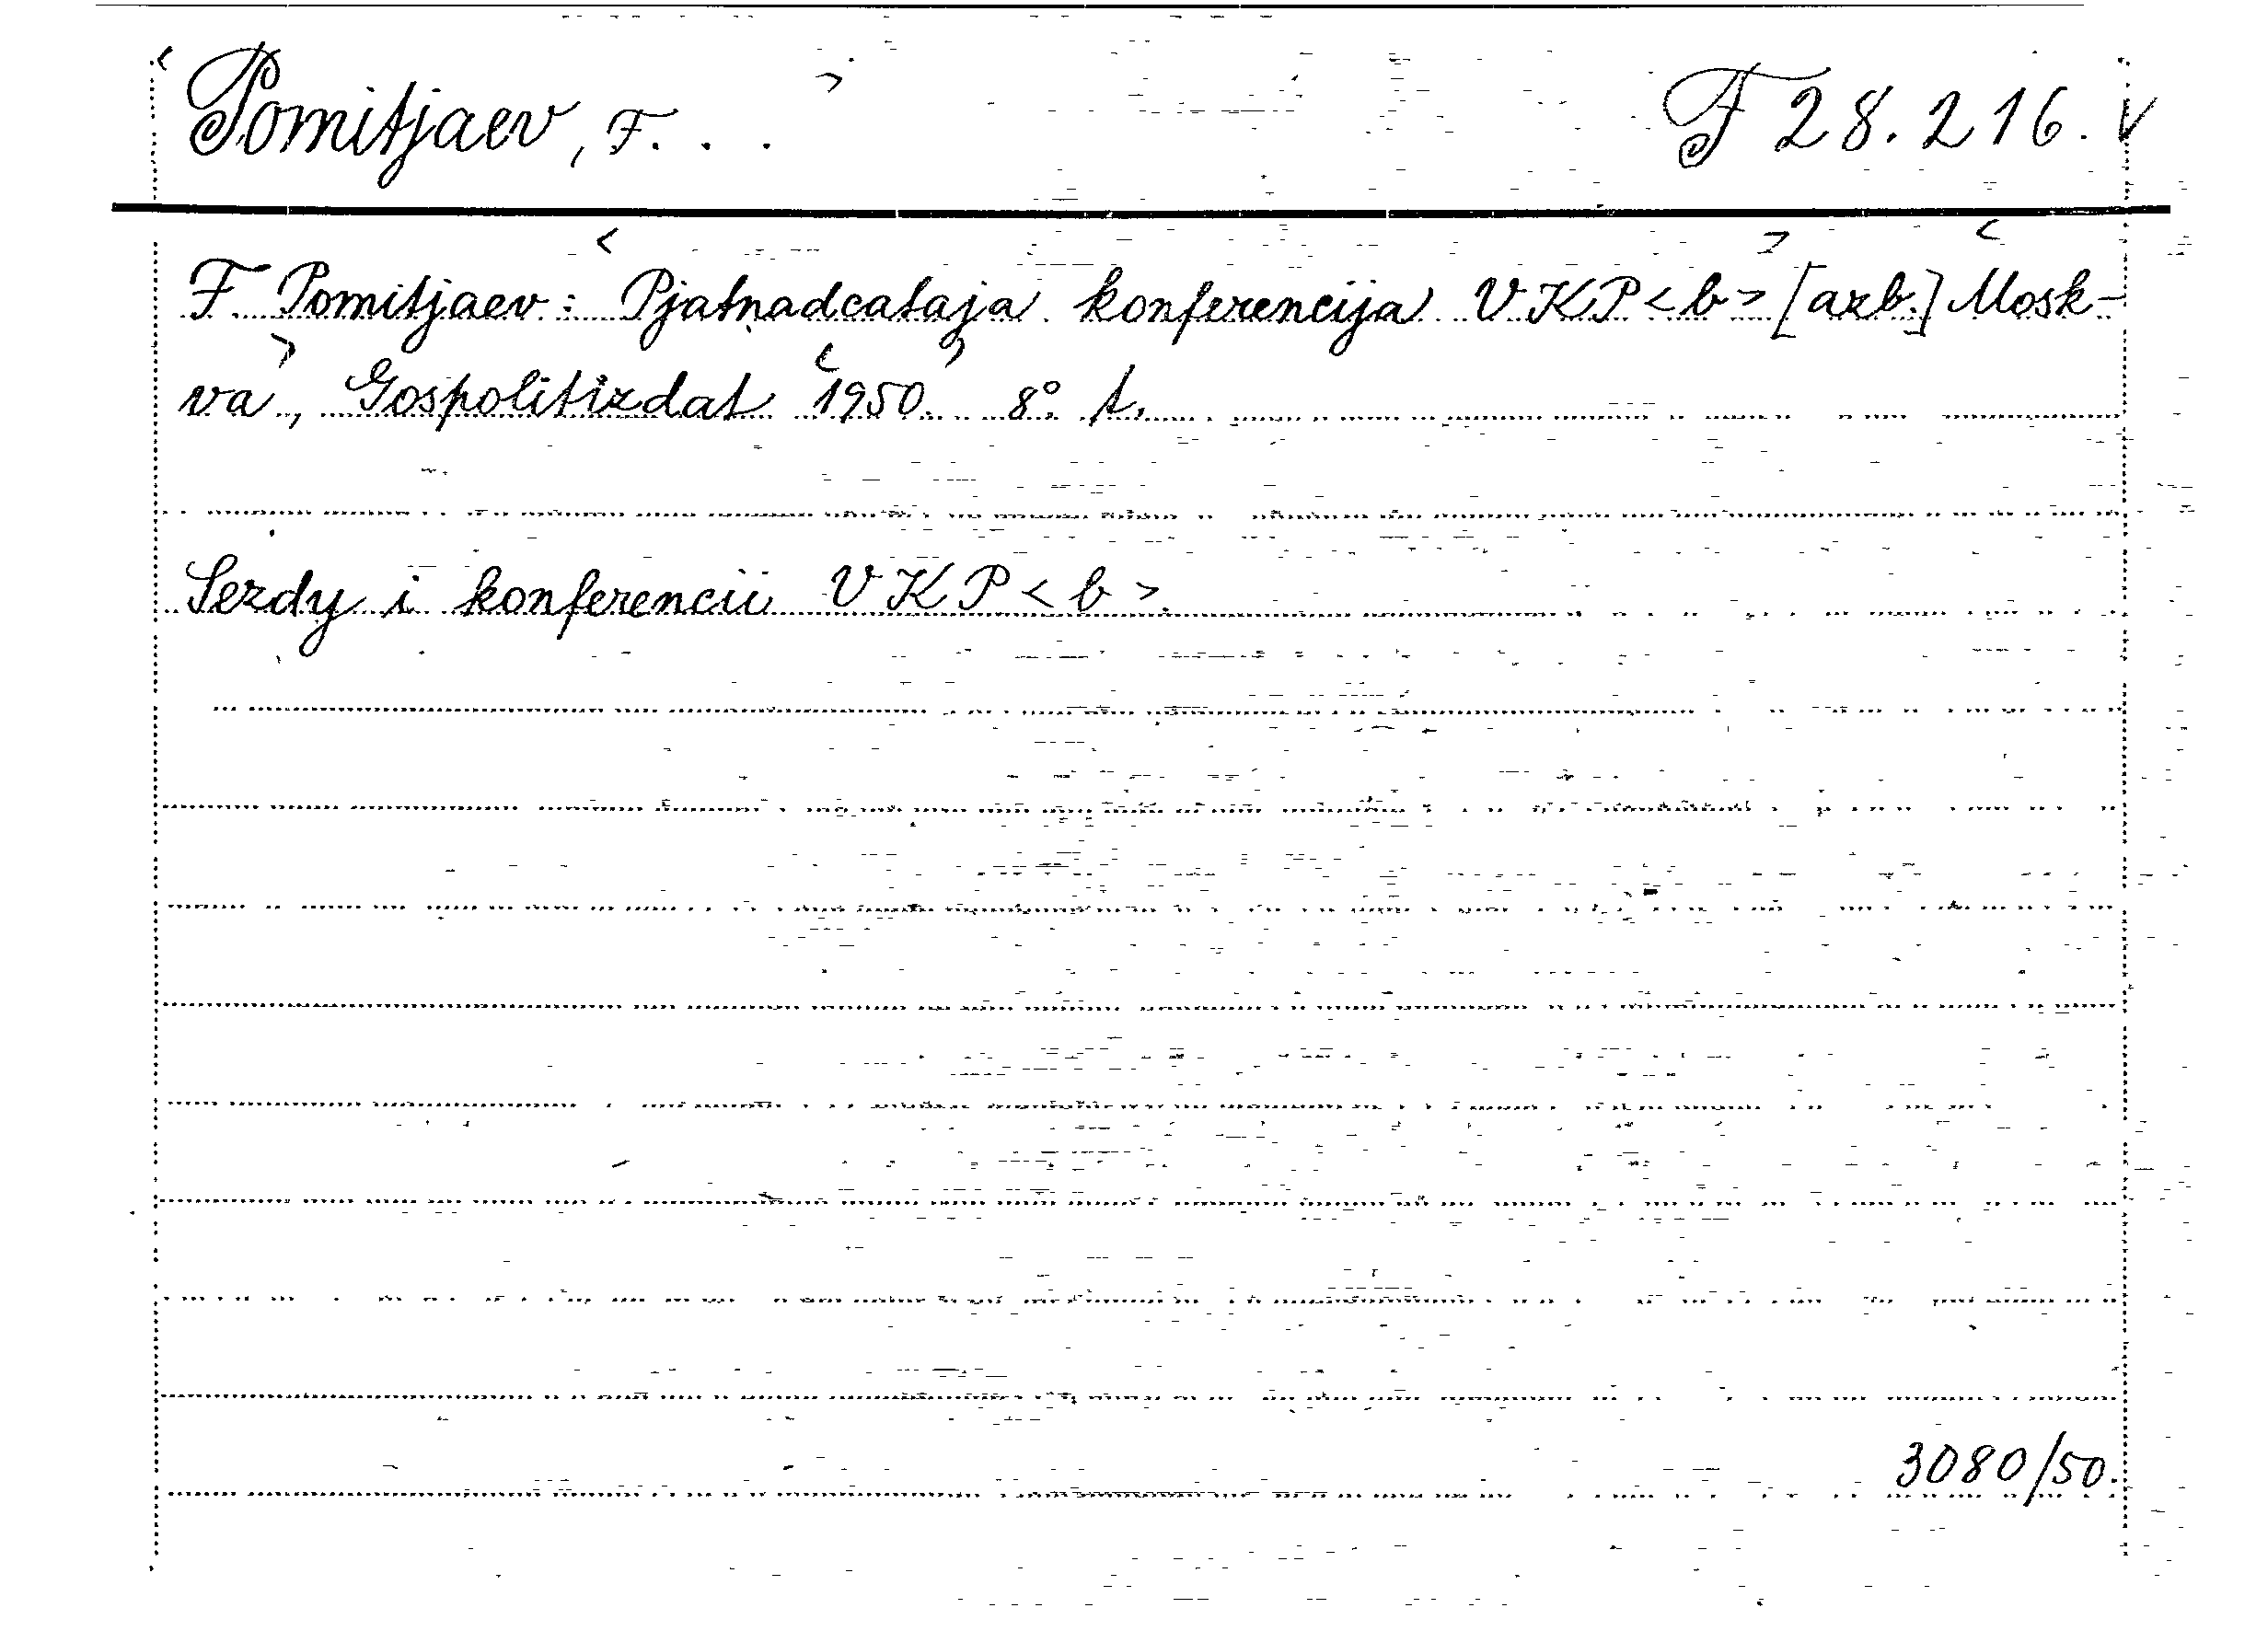 <Pomitjaev, F. . . > F 28.216. v
F Pomitjaev: <Pjatnadcataja konferencija VKP<b>> [azb.] <Mosk-
va>, Gospolitizdat <1950.> 8° t.
Sezdy i konferencii VKP<b>.
3080/50.